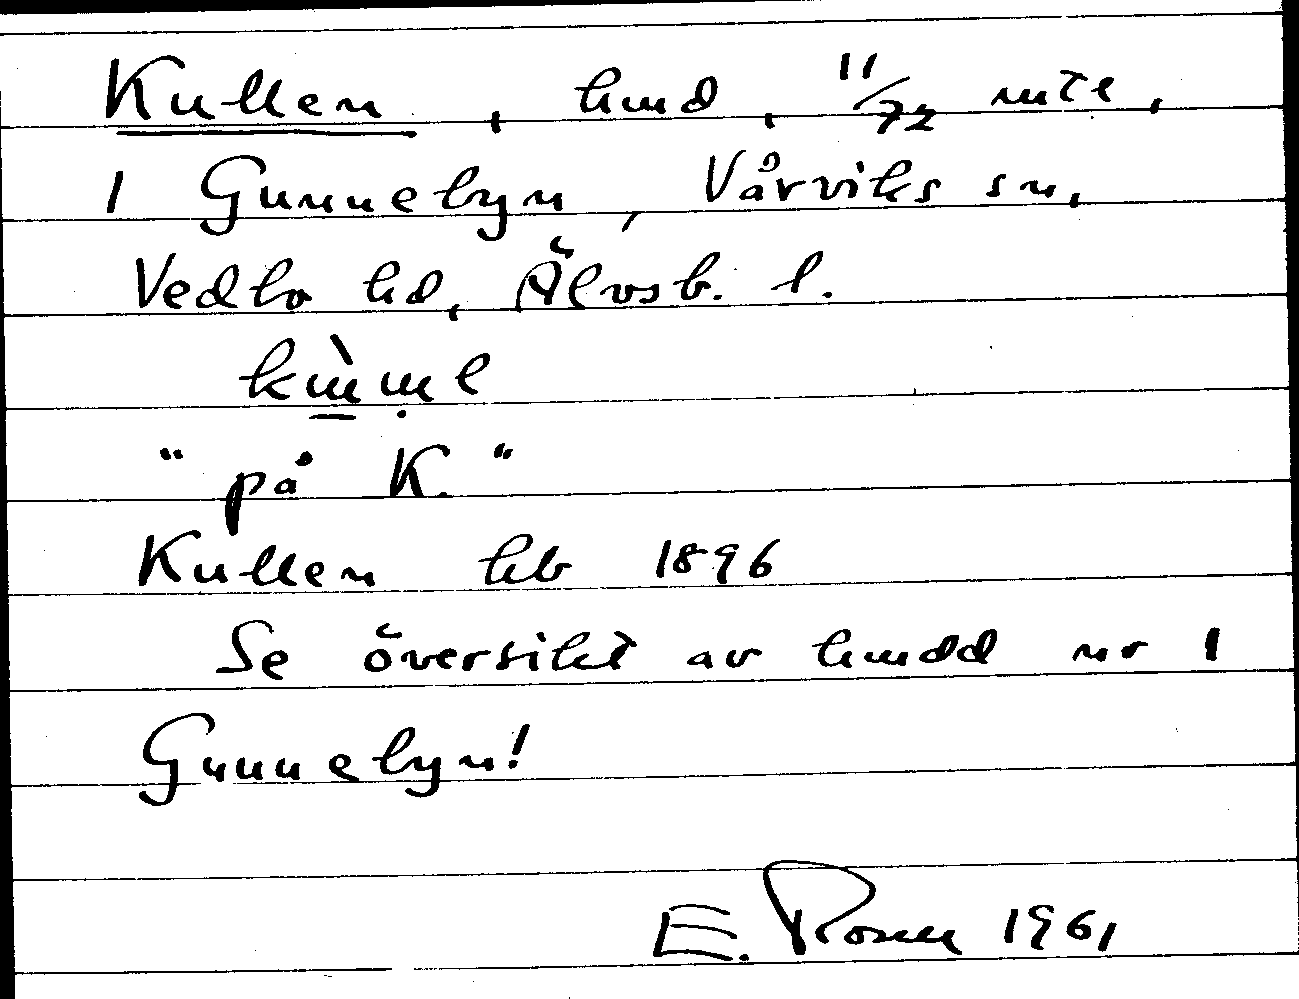 Kullen, hmd, 11/72 mtl,
1 Gunnebyn, Vårviks sn,
Vedbo hd, Älvsb. l.
"på K."
Kullen hb 1896
Se översikt av hmdd nr 1
Gunnebyn!
E. Rosén 1961